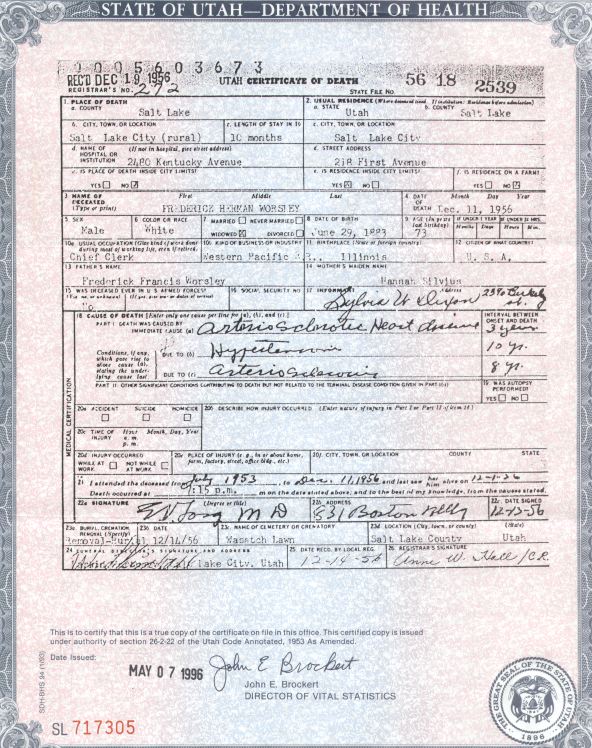 STATE OF UTAH—DEPARTMENT OF HEALTH
0005603673
REC'D DEC 19 1956 UTAH CERTIFICATE OF DEATH 56 18 2539
REGISTRAR'S NO. 272 STATE FILE NO.
1. PLACE OF DEATH 2. USUAL RESIDENCE (Where deceased lived. If institution: Residence before admission)
a. COUNTY Salt Lake a. STATE Utah b. COUNTY Salt Lake
b. CITY, TOWN, OR LOCATION c. LENGTH OF STAY IN 1b c. CITY, TOWN, OR LOCATION
Salt Lake City (rural) 10 months Salt Lake City
d. NAME OF HOSPITAL OR INSTITUTION (If not in hospital, give street address) d. STREET ADDRESS
2480 Kentucky Avenue 218 First Avenue
e. IS PLACE OF DEATH INSIDE CITY LIMITS? e. IS RESIDENCE INSIDE CITY LIMITS? f. IS RESIDENCE ON A FARM?
YES NO YES NO YES NO
3. NAME OF DECEASED (Type or print) First Middle Last 4. DATE OF DEATH Month Day Year
FREDERICK HERMAN WORSLEY Dec. 11, 1956
5. SEX 6. COLOR OR RACE 7. MARRIED NEVER MARRIED 8. DATE OF BIRTH 9. AGE (In years last birthday) IF UNDER 1 YEAR IF UNDER 24 HRS.
Male White WIDOWED DIVORCED June 29, 1883 73 Months Days Hours Min.
10a. USUAL OCCUPATION (Give kind of work done during most of working life, even if retired) 10b. KIND OF BUSINESS OR INDUSTRY 11. BIRTHPLACE (State or foreign country) 12. CITIZEN OF WHAT COUNTRY?
Chief Clerk Western Pacific R.R. Illinois U. S. A.
13. FATHER'S NAME 14. MOTHER'S MAIDEN NAME
Frederick Francis Worsley Hannah Silvius
15. WAS DECEASED EVER IN U.S. ARMED FORCES? 16. SOCIAL SECURITY NO. 17. INFORMANT
(Yes, no, or unknown) (If yes, give war or dates of service) Sylvia W Dixon
No
18. CAUSE OF DEATH [Enter only one cause per line for (a), (b), and (c).] INTERVAL BETWEEN ONSET AND DEATH
PART I. DEATH WAS CAUSED BY:
IMMEDIATE CAUSE (a) Arteriosclerotic Heart disease 3 years
Conditions, if any, which gave rise to above cause (a), stating the underlying cause last.
DUE TO (b) Hypertension 10 yr.
DUE TO (c) arteriosclerosis 8 yr.
PART II. OTHER SIGNIFICANT CONDITIONS CONTRIBUTING TO DEATH BUT NOT RELATED TO THE TERMINAL DISEASE CONDITION GIVEN IN PART I(a) 19. WAS AUTOPSY PERFORMED?
YES NO
MEDICAL CERTIFICATION
20a. ACCIDENT SUICIDE HOMICIDE 20b. DESCRIBE HOW INJURY OCCURRED. (Enter nature of injury in Part I or Part II of item 18.)
20c. TIME OF INJURY Hour Month, Day, Year
a. m.
p. m.
20d. INJURY OCCURRED 20e. PLACE OF INJURY (e. g., in or about home, farm, factory, street, office bldg., etc.) 20f. CITY, TOWN, OR LOCATION COUNTY STATE
WHILE AT WORK NOT WHILE AT WORK
21. I attended the deceased from July 1953 to Dec. 11, 1956 and last saw him alive on
Death occurred at 7:15 p.m. m on the date stated above, and to the best of my knowledge, from the causes stated.
22a. SIGNATURE (Degree or title) 22b. ADDRESS 22c. DATE SIGNED
M D Boston Bldg 12-13-56
23a. BURIAL, CREMATION, REMOVAL (Specify) 23b. DATE 23c. NAME OF CEMETERY OR CREMATORY 23d. LOCATION (City, town, or county) (State)
Removal-Burial 12/14/56 Wasatch Lawn Salt Lake County Utah
24. FUNERAL DIRECTOR'S SIGNATURE AND ADDRESS 25. DATE RECD. BY LOCAL REG. 26. REGISTRAR'S SIGNATURE
Lake City, Utah 12-14-56 Anne W. Hall /C.R.
This is to certify that this is a true copy of the certificate on file in this office. This certified copy is issued
under authority of section 26-2-22 of the Utah Code Annotated, 1953 As Amended.
Date Issued: MAY 07 1996 John E Brockert
John E. Brockert
DIRECTOR OF VITAL STATISTICS
SDH-BHS 94 (1/93)
SL 717305
THE GREAT SEAL OF THE STATE OF UTAH
1896